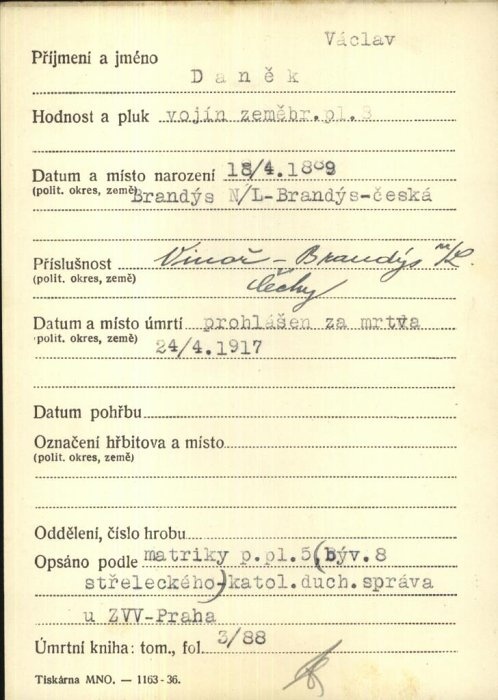 Václav
Příjmení a jméno
Daněk
Hodnost a pluk vojín zeměbr.pl.8
Datum a místo narození 18/4.1889
(polit. okres, země) Brandýs N/L-Brandýs-česká
Příslušnost Vinoř - Brandýs n/L.
(polit. okres, země) Čechy
Datum a místo úmrtí prohlášen za mrtva
(polit. okres, země) 24/4.1917
Datum pohřbu
Označení hřbitova a místo
(polit. okres, země)
Oddělení, číslo hrobu
Opsáno podle matriky p.pl.5(býv.8
střeleckého)katol.duch.správa
u ZVV-Praha
Úmrtní kniha: tom., fol. 3/88
Tiskárna MNO. — 1163-36.